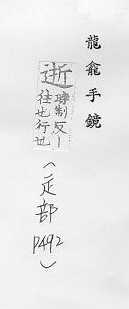 龍龕手鏡
逝
時制反-
往也行也
(辵部
P492)